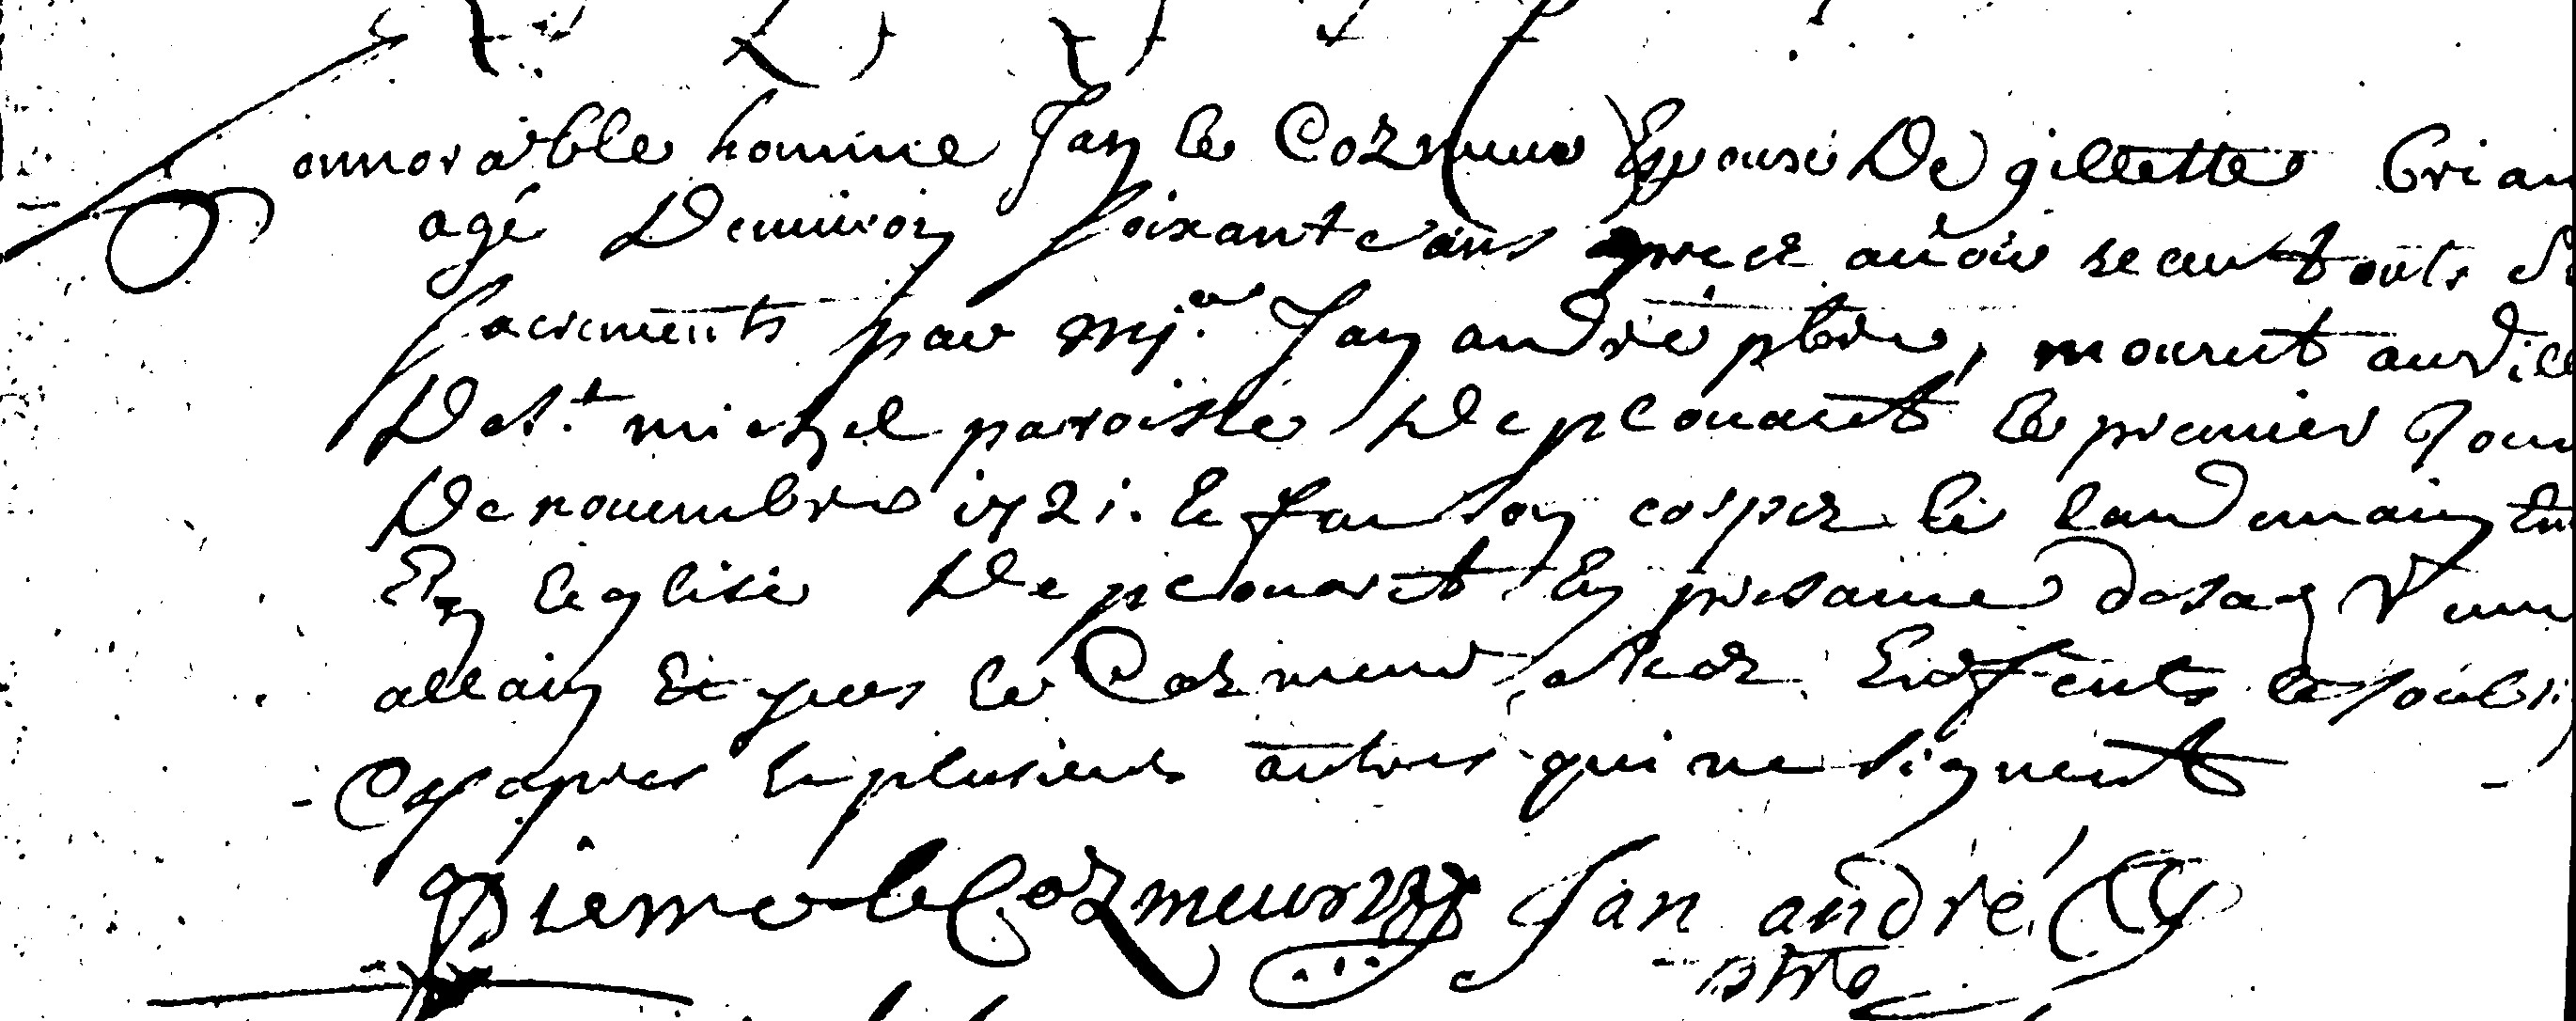 onnorable homme Jan le Cozmeur Epoux De gillette brian
agé Denuiron soixante ans apres auoir receu touts
sacrements par mj.re Jan andre pbre, mourut au vill
De st. michel paroisse De plouaret le premier Jour
De nouembre 1721. Et fut son corps le landemain
En leglise De plouaret En presance de sa
allain Et yues le Cozmeur Enffents
Cy apres Et plusieurs autres qui ne signent
Pierre le Cozmeur Jan andré
pbre